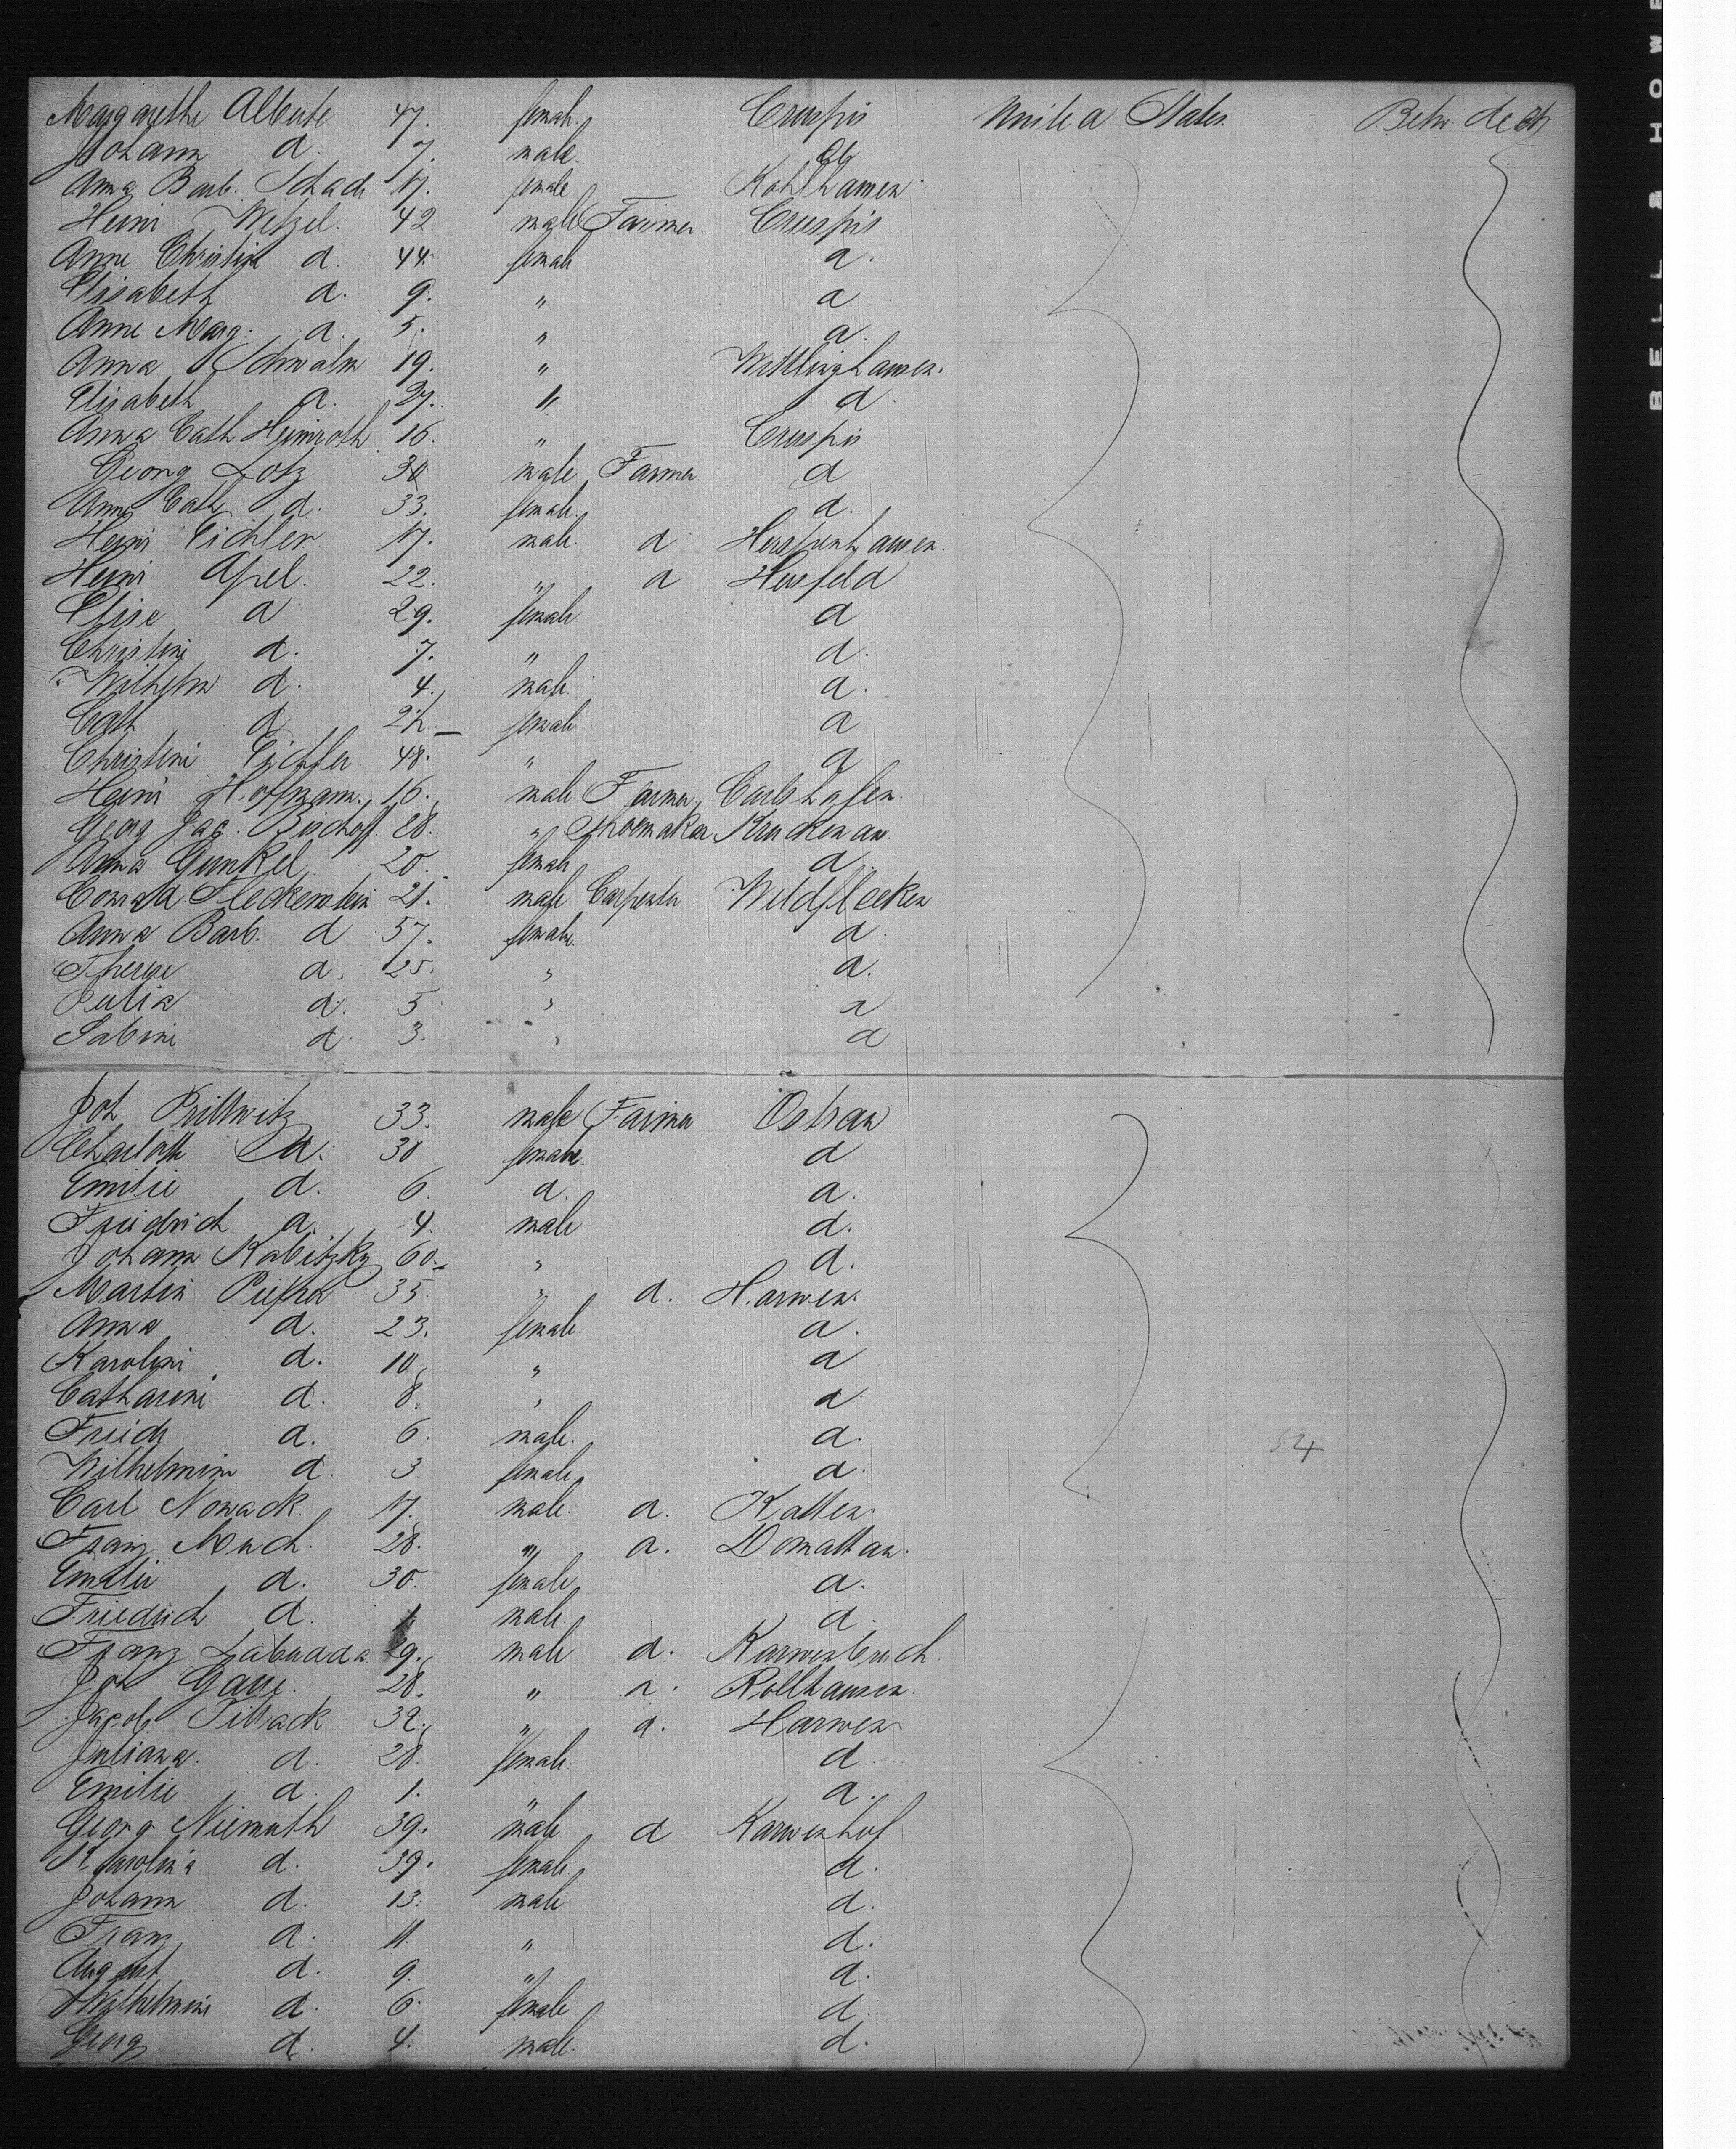 Margarethe Alberte 47. female Cruspis United States Betw. deck
Johann d. 7. male. do
Anna Barb. Schade 17. female Kohlhausen
Heinr Wetzel. 42 male Farmer. Cruspis
Anne Christine d. 44. female d.
Elisabeth d. 9. " d
Anne Marg. d. 5. " d.
Anna Schwalm 19. " Willingshausen.
Elisabeth d. 27. " d.
Anna Cath Heimroth 16. " Cruspis
Georg Lotz 30 male Farmer d
Anna Cath d. 33. female. d.
Heinr Eichler 17. male. d
Heinr Apel. 22. " d Hersfeld
Elise d 29. female d
Christine d. 7. " d.
Wilhelm d. 4. male. d.
Cath d female d
Christine 48. " d
Heinr Hoffmann. 16. male Farmer, Carlshafen.
Georg Jac. Bischoff 28. " Shoemaker Kruckenau.
Anna Gunkel 20. female d.
Conrad Fleckenstein 21. male. Carpenter Wildflecken
Anna Barb. d 57. female. d.
Therese d. 25. " d.
Julia d. 5 " d
Sabine d. 3. " d
Joh Prillwitz 33. male Farmer Ostrau
Charlotte d. 30 female. d
Emilie d. 6. d. d.
Friedrich d. 4. male d.
Johann Kabitzky 60. " d.
Martin 35. " d. Harwen.
Anna d. 23. female d.
Karoline d. 10 " d
Catharine d. 8. " d
Friedr d. 6. male. d.
Wilhelmine d. 3 female. d.
Carl Nowack. 17. male. d. Katten
Franz Much. 28. " d. Domattau.
Emilie d. 30. female d.
Friedrich d. 1. male. d.
Franz Labudda 29. male d. Karwenbruch.
Joh 28. " d. Rollhausen.
Jacob Tillack 32. " d. Harwen
Juliana. d. 28. female d.
Emilie d. 1. " d.
Georg Niemuth 39. male d Karwenhof
Karolina d. 39. female. d.
Johann d. 13. male d.
Franz d. 11. " d.
August d. 9. " d.
Wilhelmine d. 6. female d.
Georg d. 4. male. d.
54
BELL & HOWE